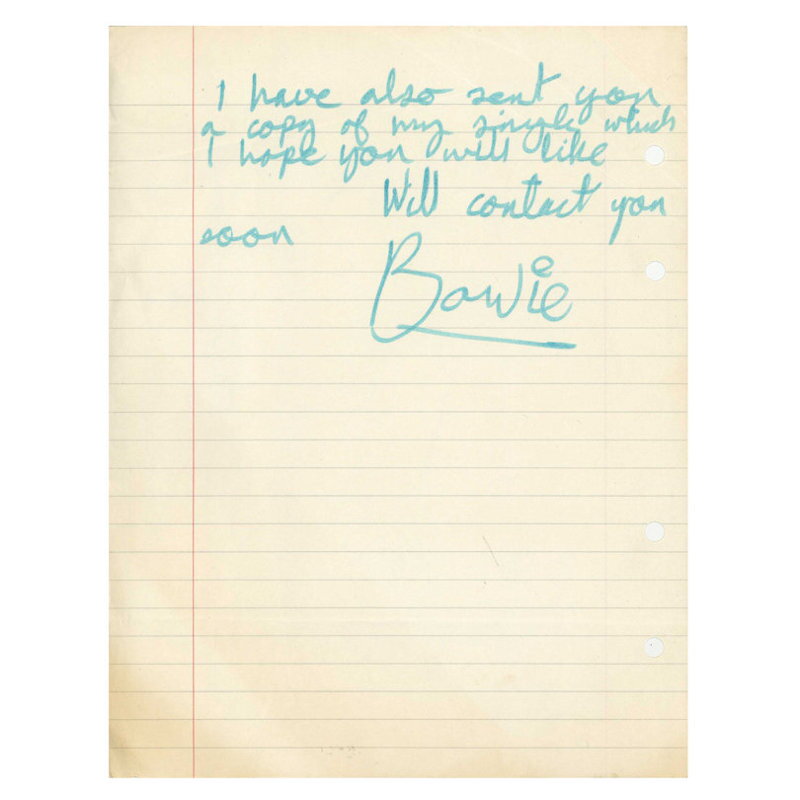 I have also sent you
a copy of my single which
I hope you will like
Will contact you
soon
Bowie